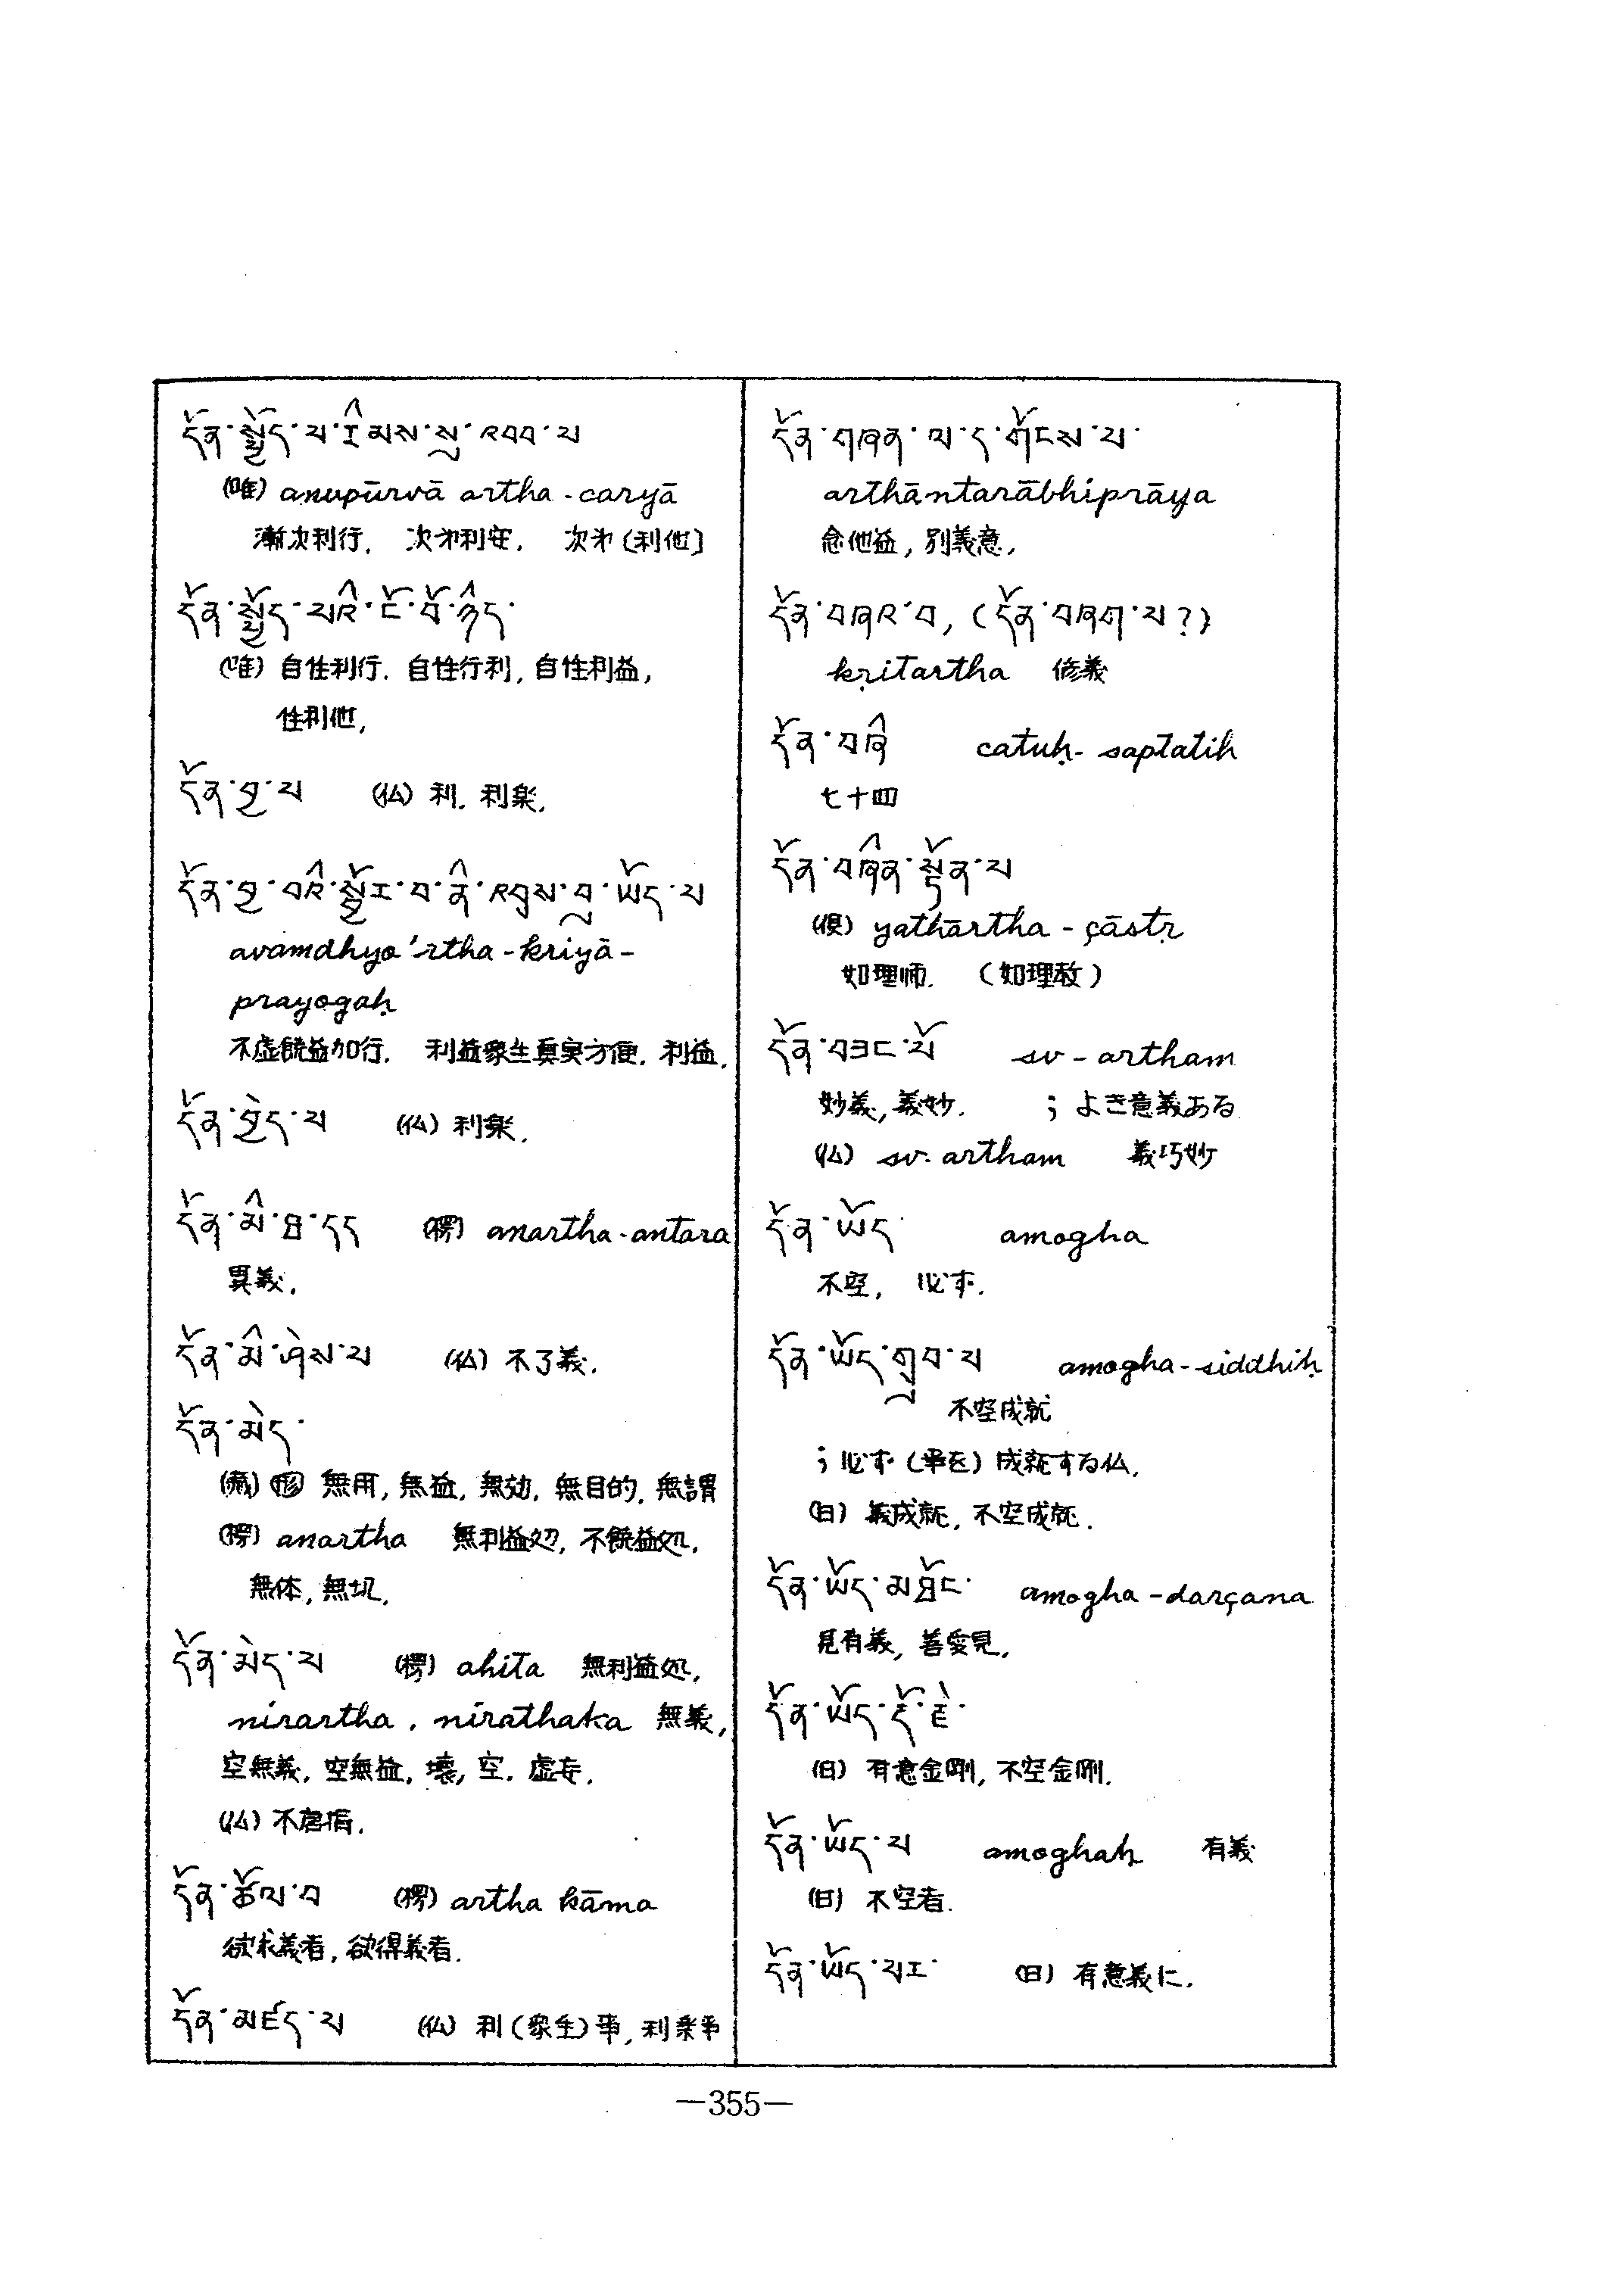 དོན་སྤྱོད་པ་རིམས་སུ་འབབ་པ
(唯) anupūrvā artha-caryā
漸次利行. 次才利安. 次才〔利他〕
དོན་སྤྱོད་པའི་ངོ་བོ་ཉིད་
(唯) 自性利行. 自性行利, 自性利益,
性利他,
དོན་བྱ་པ (仏) 利. 利楽.
དོན་བྱ་བའི་སྦྱོར་བ་ནི་འབྲས་བུ་ཡོད་པ
avamdhyo'rtha-kriyā-
prayogaḥ
不虚饒益加行. 利益衆生真実方便. 利益.
དོན་བྱེད་པ (仏) 利楽.
དོན་མི་ཐ་དད (楞) anartha-antara
異義.
དོན་མི་ཤེས་པ (仏) 不了義.
དོན་མེད་
(蔵) 無用, 無益, 無効, 無目的, 無謂
(楞) anartha 無利益処, 不饒益処,
無体, 無切,
དོན་མེད་པ (楞) ahita 無利益処,
nirartha, nirathaka 無義,
空無義, 空無益, 壊, 空. 虚妄.
(仏) 不唐捐.
དོན་ཚོལ་བ (楞) artha kāma
欲求義者, 欲得義者.
དོན་མཛད་པ (仏) 利(衆生)事, 利楽事
དོན་གཞན་ལ་དགོངས་པ་
arthāntarābhiprāya
念他益, 別義意,
དོན་བཞར་བ, (དོན་བཞག་པ?)
kṛitartha 修義
དོན་བཞི catuḥ-saptatih
七十四
དོན་བཞིན་སྟོན་པ
(倶) yathārtha-çāstṛ
如理师. (如理教)
དོན་བཟང་པོ sv-artham
妙義, 義妙. ; よき意義ある
(仏) sv.artham 義巧妙
དོན་ཡོད་ amogha
不空, 必ず.
དོན་ཡོད་གྲུབ་པ amogha-siddhiḥ
不空成就
; 必ず(事を)成就する仏,
(日) 義成就, 不空成就.
དོན་ཡོད་མཐོང་ amogha-darçana
見有義, 善愛見,
དོན་ཡོད་རྡོ་རྗེ་
(日) 有意金剛, 不空金剛.
དོན་ཡོད་པ amoghaḥ 有義
(日) 不空者.
དོན་ཡོད་པར་ (日) 有意義に.
—355—